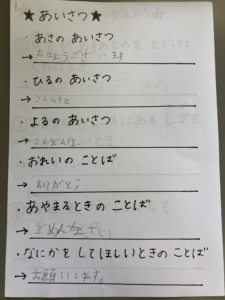 ★あいさつ★
・あさの あいさつ
→おはようございます
・ひるの あいさつ
→こんにちは
・よるの あいさつ
→こんばんは
・おれいの ことば
→ありがとう
・あやまるときの ことば
→ごめんなさい
・なにかを してほしいときの ことば
→お願いします。